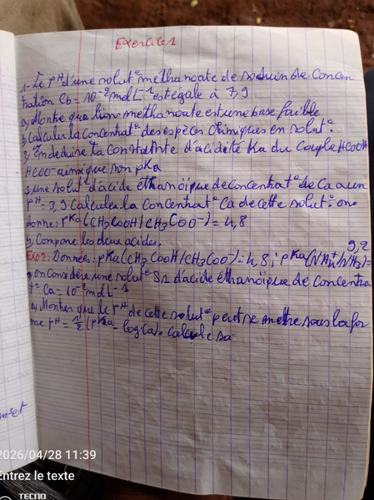 Exercice 1
1- Le pH d'une solut° méthanoate de sodium de concen
tration Cb = 10⁻² mol L⁻¹ est égale à 7,9
a, Montre que l'ion méthanoate est une base faible
b, Calculer la concentrat° des espèces chimiques en solut°.
c, En déduire la constante d'acidité Ka du couple HCOOH
HCOO⁻ ainsi que son pKa
2, une solut° d'acide éthanoïque de concentrat° de Ca a un
pH = 3,9 Calculer la concentrat° Ca de cette solut° on
donne: pKa(CH₃COOH/CH₃COO⁻) = 4,8
b, Compare les deux acides.
9,2
Exo2: Données: pKa(CH₃COOH/CH₃COO⁻) = 4,8 ; pKa(NH₄⁺/NH₃)=
on considère une solut° S₁ d'acide éthanoïque de concentra
t° Ca = 10⁻² mol L⁻¹
a, Montrer que le pH de cette solut° peut se mettre sous la for
me pH = ½ (pKa - log Ca). calcule sa
2026/04/28 11:39
Entrez le texte
TECNO